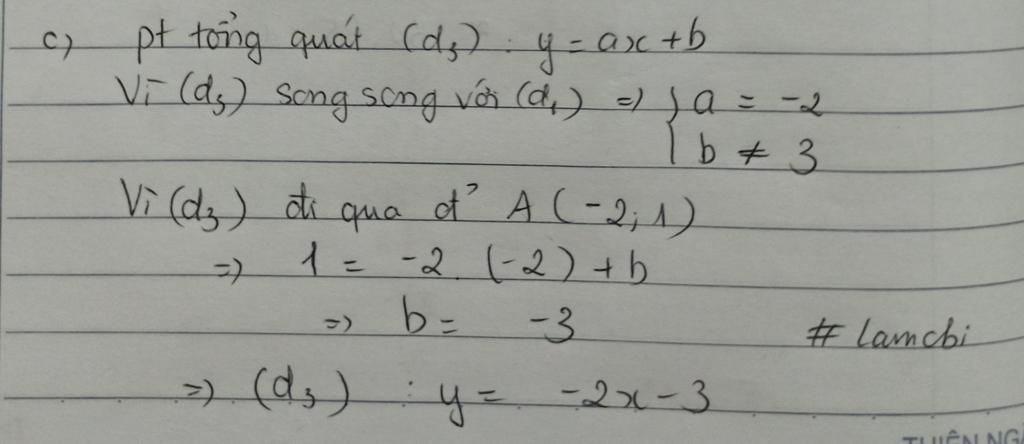 c) pt tổng quát (d₃) : y = ax + b
Vì (d₃) song song với (d₁) => { a = -2
b ≠ 3
Vì (d₃) đi qua đ' A (-2; 1)
=> 1 = -2. (-2) + b
=> b = -3
# lamchi
=> (d₃) : y = -2x - 3
THIÊN NG